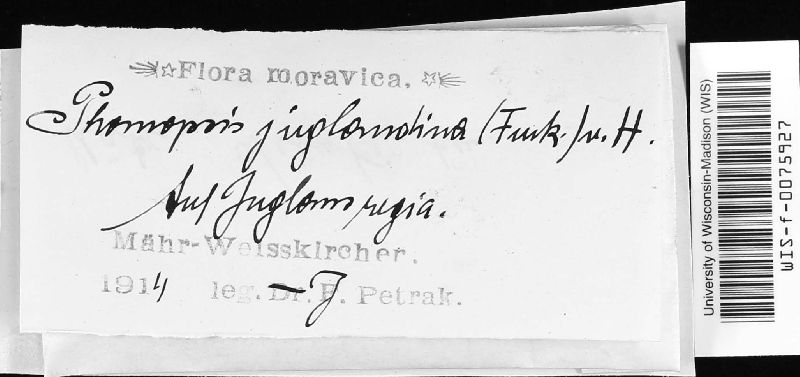 Flora moravica.
Phomopsis juglandina (Fuck.) v. H.
Auf Juglans regia.
Mähr-Weisskirchen.
1914 leg. Dr. F. Petrak.
J
University of Wisconsin-Madison (WIS)
WIS-f-0075927